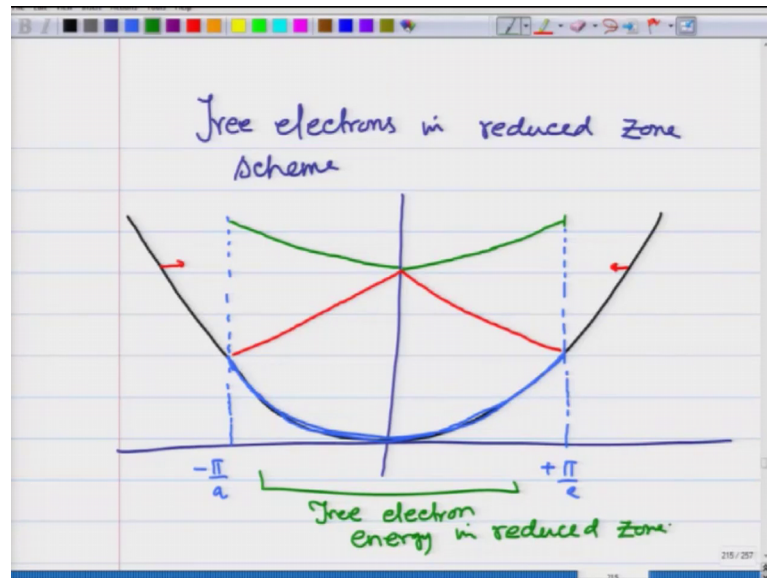 Free electrons in reduced zone
scheme
-π/a
+π/a
Free electron
energy in reduced zone.
215 / 257